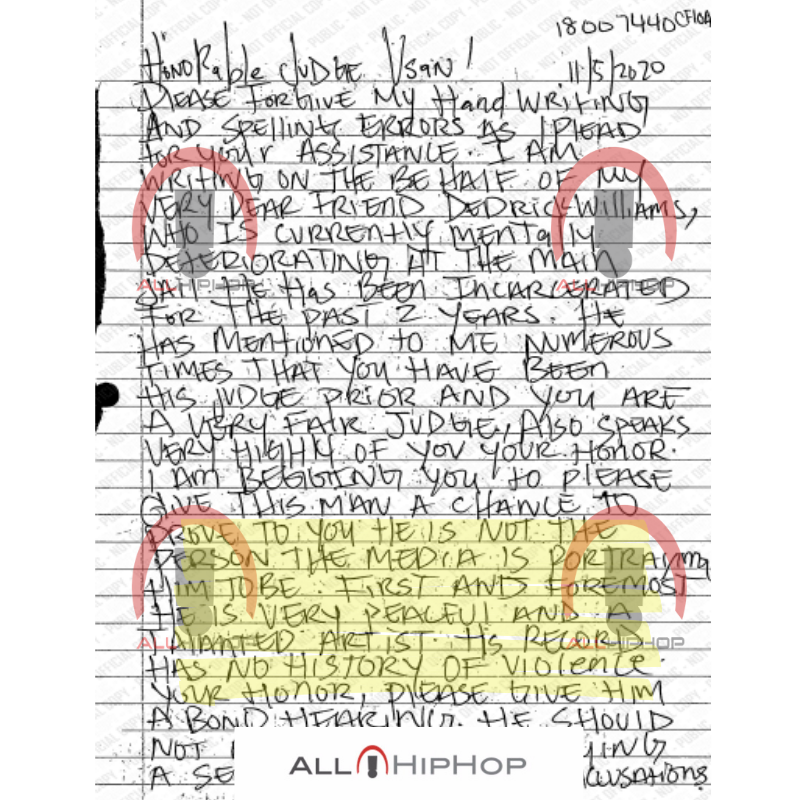 18007440CF10A
HONORable JUDGE USAN!
11/5/2020
PLEASE FORGIVE MY Hand WRITING
AND SPELLING ERRORS AS I PLEAD
FOR YOUR ASSISTANCE. I AM
WRITING ON THE BEHALF OF MY
VERY DEAR FRIEND DEDRICK WILLIAMS,
WHO IS CURRENTLY MENTALLY
DETERIORATING AT THE MAIN
JAIL HE HAS BEEN INCARCERATED
FOR THE PAST 2 YEARS. HE
HAS MENTIONED TO ME NUMEROUS
TIMES THAT YOU HAVE BEEN
HIS JUDGE PRIOR AND YOU ARE
A VERY FAIR JUDGE, ALSO SPEAKS
VERY HIGHLY OF YOU YOUR HONOR.
I AM BEGGING YOU TO PLEASE
GIVE THIS MAN A CHANCE TO
PROVE TO YOU HE IS NOT THE
PERSON THE MEDIA IS PORTRAYING
HIM TO BE. FIRST AND FOREMOST
HE IS VERY PEACEFUL AND A
TALANTED ARTIST. HIS RECORD
HAS NO HISTORY OF VIOLENCE.
YOUR HONOR, PLEASE GIVE HIM
A BOND HEARING. HE SHOULD
NOT
A SE
ALLHIPHOP